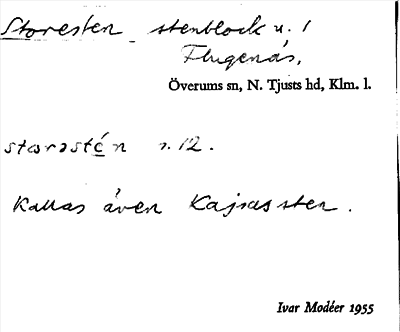 Storesten stenblock u. 1
Flugenäs,
Överums sn, N. Tjusts hd, Klm. l.
storəstén s. 12.
Kallas även Kajsas sten.
Ivar Modéer 1955